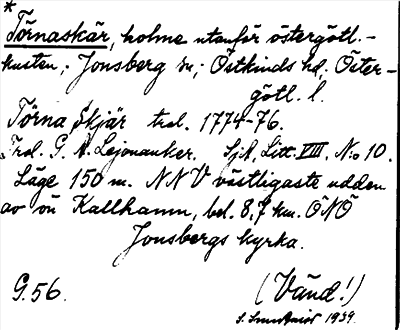 *
Törnaskär, holme utanför östergötl.-
kusten; Jonsberg sn; Östkinds hd; Öster-
götl. l.
Törna Skjär trol. 1774-76.
Trol. G. A. Lejonanker. Sjk. Litt. VIII. No 10.
Läge 150 m. NNV västligaste udden
av ön Kallhamn, bel. 8,7 km. ÖNÖ
Jonsbergs kyrka.
G.56. (Vänd!)
1939.